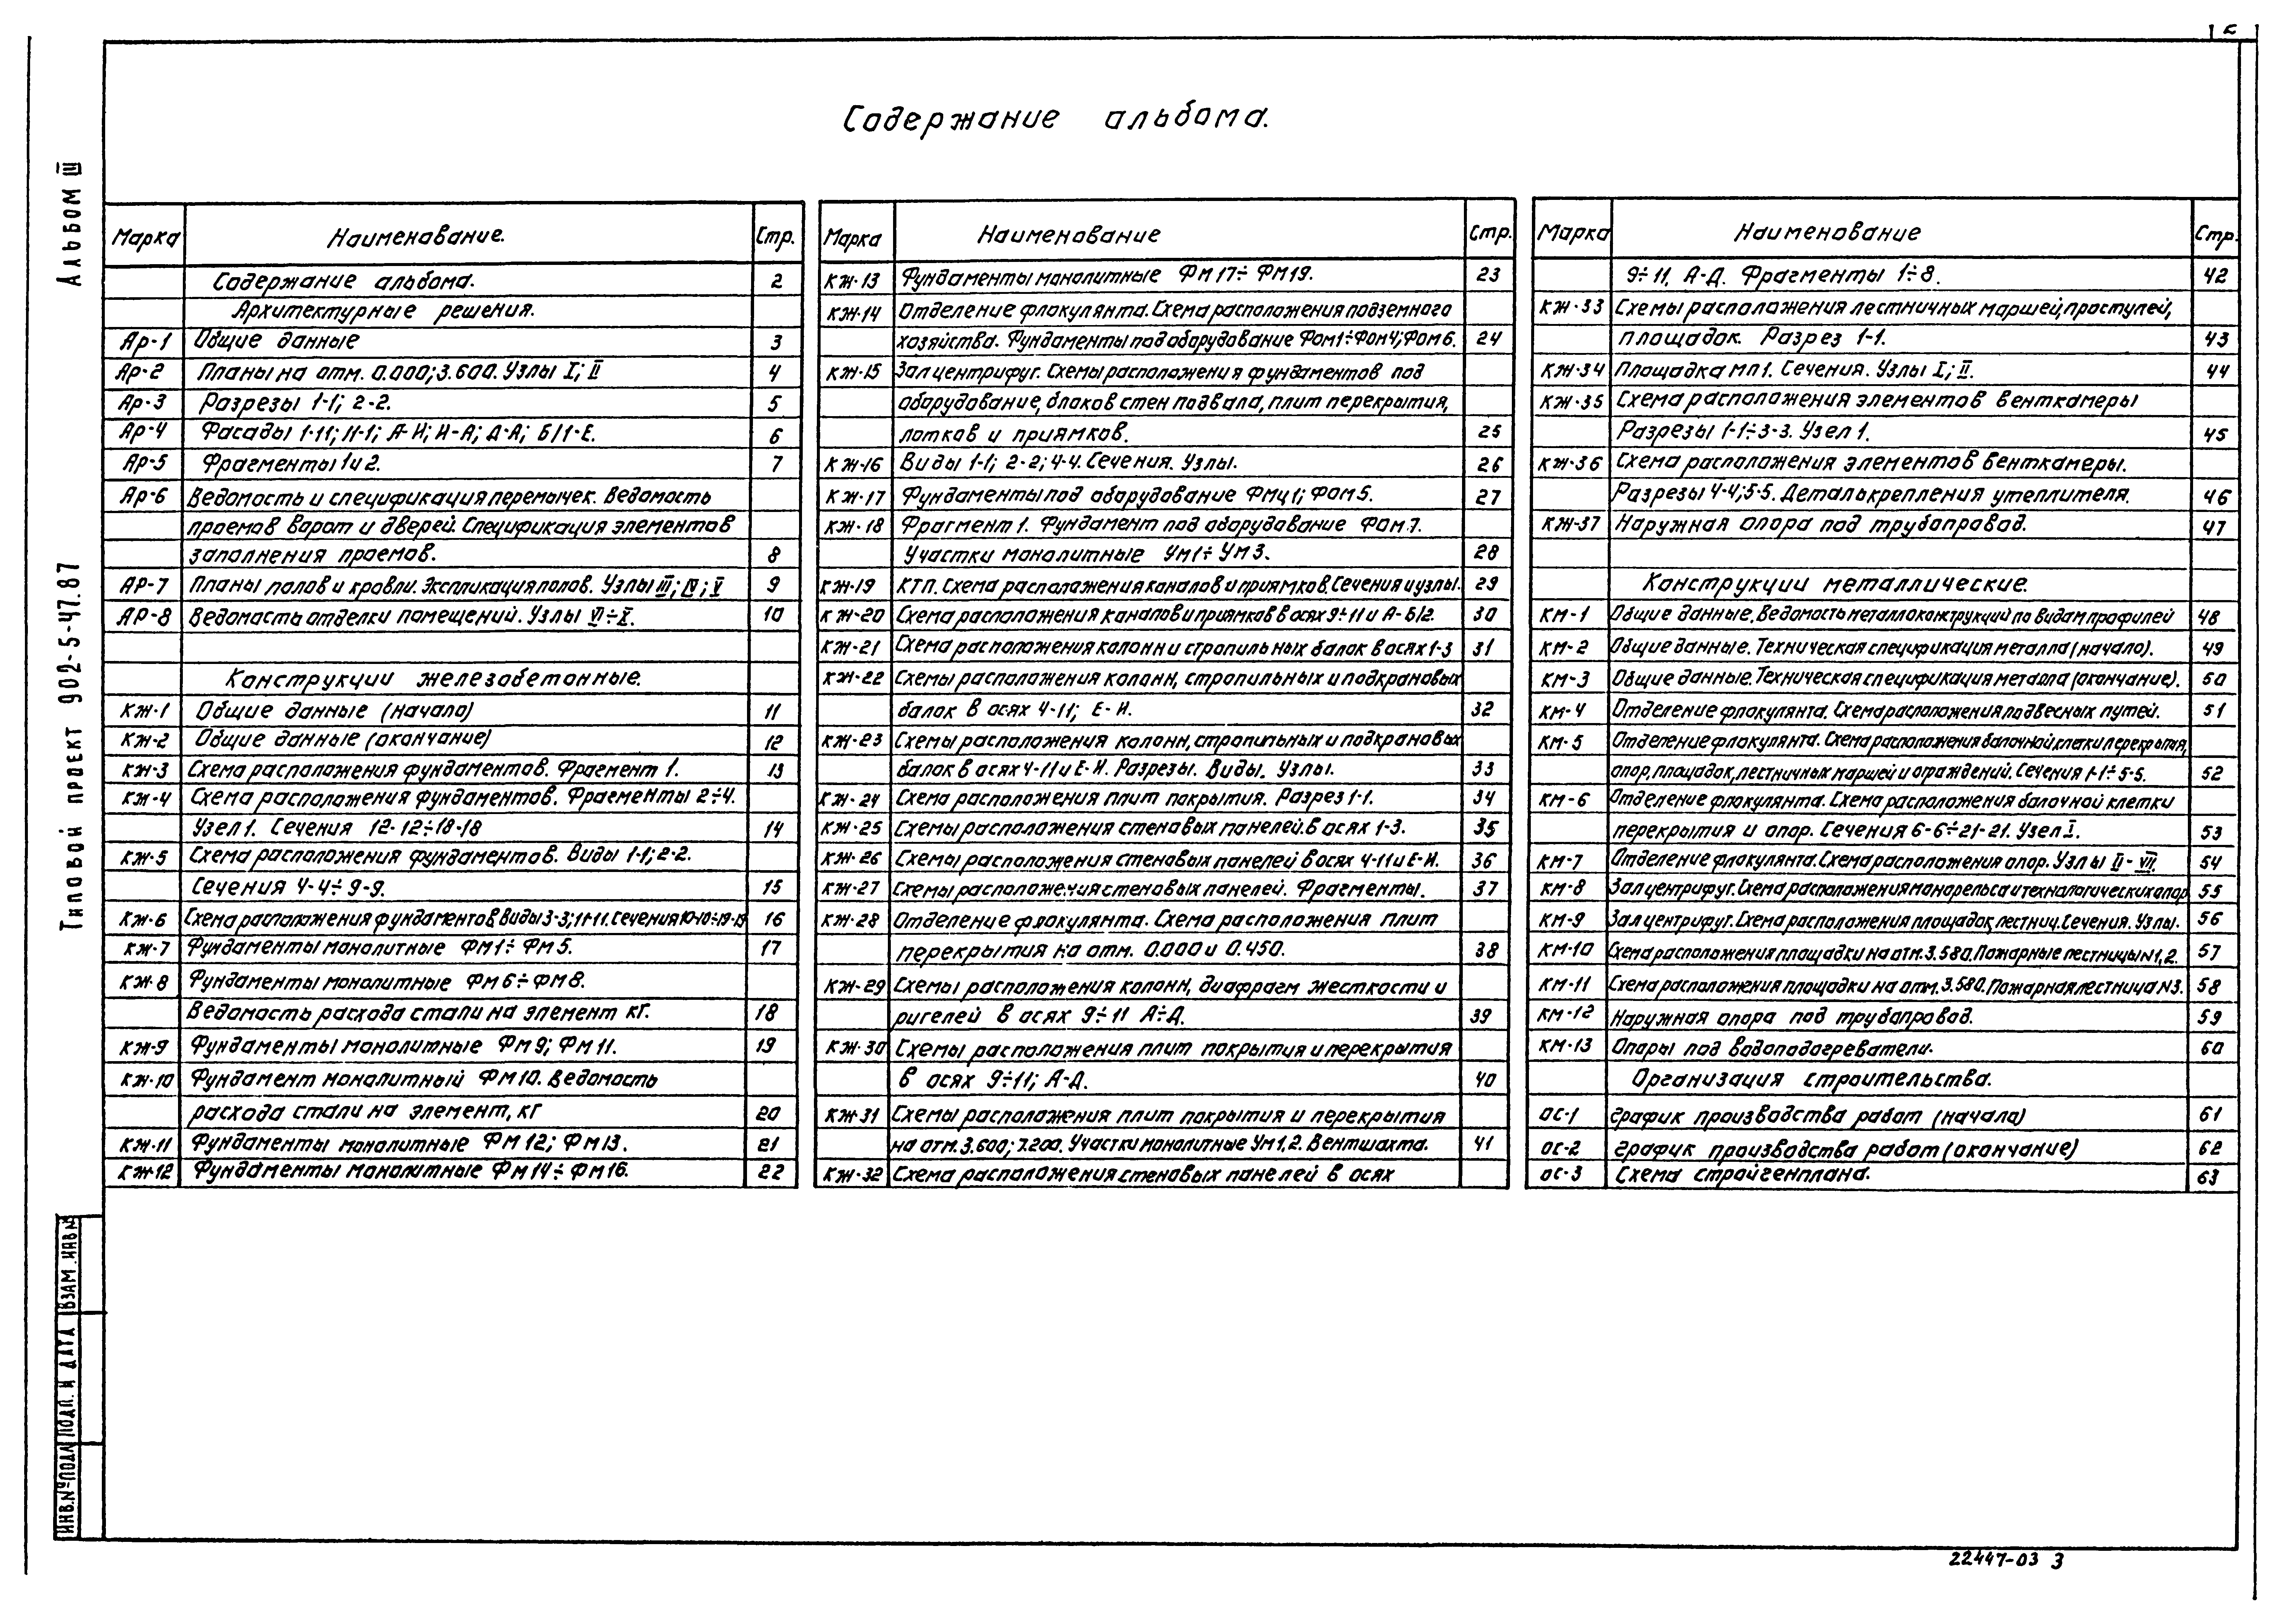 2
Содержание альбома.
Альбом III
Типовой проект 902-5-47.87
Марка Наименование. Стр.
Содержание альбома. 2
Архитектурные решения.
Ар-1 Общие данные 3
Ар-2 Планы на отм. 0.000; 3.600. Узлы I; II 4
Ар-3 Разрезы 1-1; 2-2. 5
Ар-4 Фасады 1-11; 11-1; А-И; И-А; Д-А; Б/1-Е. 6
Ар-5 Фрагменты 1 и 2. 7
Ар-6 Ведомость и спецификация перемычек. Ведомость
проемов ворот и дверей. Спецификация элементов
заполнения проемов. 8
АР-7 Планы полов и кровли. Экспликация полов. Узлы III; IV; V 9
АР-8 Ведомость отделки помещений. Узлы VI÷X. 10
Конструкции железобетонные.
КЖ-1 Общие данные (начало) 11
КЖ-2 Общие данные (окончание) 12
КЖ-3 Схема расположения фундаментов. Фрагмент 1. 13
КЖ-4 Схема расположения фундаментов. Фрагменты 2÷4.
Узел 1. Сечения 12-12÷18-18 14
КЖ-5 Схема расположения фундаментов. Виды 1-1; 2-2.
Сечения 4-4÷9-9. 15
КЖ-6 Схема расположения фундаментов Виды 3-3; 11-11. Сечения 10-10÷19-19 16
КЖ-7 Фундаменты монолитные ФМ1÷ФМ5. 17
КЖ-8 Фундаменты монолитные ФМ6÷ФМ8.
Ведомость расхода стали на элемент кг. 18
КЖ-9 Фундаменты монолитные ФМ9; ФМ11. 19
КЖ-10 Фундамент монолитный ФМ10. Ведомость
расхода стали на элемент, кг 20
КЖ-11 Фундаменты монолитные ФМ12; ФМ13. 21
КЖ-12 Фундаменты монолитные ФМ14÷ФМ16. 22
Марка Наименование Стр.
КЖ-13 Фундаменты монолитные ФМ17÷ФМ19. 23
КЖ-14 Отделение флокулянта. Схема расположения подземного
хозяйства. Фундаменты под оборудование Фом1÷Фом4; Фом6. 24
КЖ-15 Зал центрифуг. Схемы расположения фундаментов под
оборудование, блоков стен подвала, плит перекрытия,
лотков и приямков. 25
КЖ-16 Виды 1-1; 2-2; 4-4. Сечения. Узлы. 26
КЖ-17 Фундаменты под оборудование ФМц1; ФОМ5. 27
КЖ-18 Фрагмент 1. Фундамент под оборудование ФОМ7.
Участки монолитные УМ1÷УМ3. 28
КЖ-19 КТП. Схема расположения каналов и приямков. Сечения и узлы. 29
КЖ-20 Схема расположения каналов и приямков в осях 9÷11 и А-Б/2. 30
КЖ-21 Схема расположения колонн и стропильных балок в осях 1-3 31
КЖ-22 Схемы расположения колонн, стропильных и подкрановых
балок в осях 4-11; Е-И. 32
КЖ-23 Схемы расположения колонн, стропильных и подкрановых
балок в осях 4-11 и Е-И. Разрезы. Виды. Узлы. 33
КЖ-24 Схема расположения плит покрытия. Разрез 1-1. 34
КЖ-25 Схемы расположения стеновых панелей. в осях 1-3. 35
КЖ-26 Схемы расположения стеновых панелей в осях 4-11 и Е-И. 36
КЖ-27 Схемы расположения стеновых панелей. Фрагменты. 37
КЖ-28 Отделение флокулянта. Схема расположения плит
перекрытия на отм. 0.000 и 0.450. 38
КЖ-29 Схемы расположения колонн, диафрагм жесткости и
ригелей в осях 9÷11 А÷Д. 39
КЖ-30 Схемы расположения плит покрытия и перекрытия
в осях 9÷11; А-Д. 40
КЖ-31 Схемы расположения плит покрытия и перекрытия
на отм. 3.600; 7.200. Участки монолитные Ум1,2. Вентшахта. 41
КЖ-32 Схема расположения стеновых панелей в осях
Марка Наименование Стр.
9÷11, А-Д. Фрагменты 1÷8. 42
КЖ-33 Схемы расположения лестничных маршей, проступей,
площадок. Разрез 1-1. 43
КЖ-34 Площадка мп1. Сечения. Узлы I; II. 44
КЖ-35 Схема расположения элементов венткамеры
Разрезы 1-1÷3-3. Узел 1. 45
КЖ-36 Схема расположения элементов венткамеры.
Разрезы 4-4; 5-5. Деталь крепления утеплителя. 46
КЖ-37 Наружная опора под трубопровод. 47
Конструкции металлические.
КМ-1 Общие данные. Ведомость металлоконструкций по видам профилей 48
КМ-2 Общие данные. Техническая спецификация металла (начало). 49
КМ-3 Общие данные. Техническая спецификация металла (окончание). 50
КМ-4 Отделение флокулянта. Схема расположения подвесных путей. 51
КМ-5 Отделение флокулянта. Схема расположения балочной клетки перекрытия,
опор, площадок, лестничных маршей и ограждений. Сечения 1-1÷5-5. 52
КМ-6 Отделение флокулянта. Схема расположения балочной клетки
перекрытия и опор. Сечения 6-6÷21-21. Узел I. 53
КМ-7 Отделение флокулянта. Схема расположения опор. Узлы II-VII. 54
КМ-8 Зал центрифуг. Схема расположения монорельса и технологических опор 55
КМ-9 Зал центрифуг. Схема расположения площадок, лестниц. Сечения. Узлы. 56
КМ-10 Схема расположения площадки на отм. 3.580. Пожарные лестницы N1, 2. 57
КМ-11 Схема расположения площадки на отм. 3.580. Пожарная лестница N3. 58
КМ-12 Наружная опора под трубопровод. 59
КМ-13 Опоры под водоподогреватели. 60
Организация строительства.
ОС-1 График производства работ (начало) 61
ОС-2 График производства работ (окончание) 62
ОС-3 Схема стройгенплана. 63
ИНВ.№ПОДЛ ПОДП. И ДАТА ВЗАМ.ИНВ.№
22447-03 3